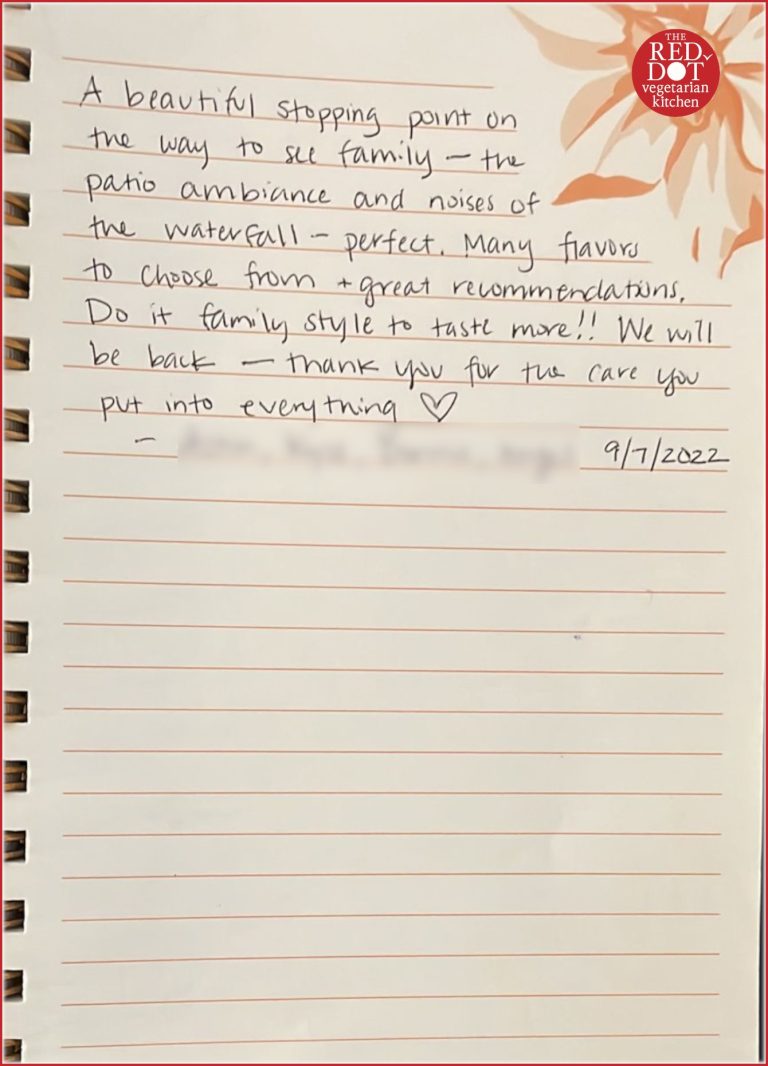 THE
RED
DOT
vegetarian
kitchen
A beautiful stopping point on
the way to see family – the
patio ambiance and noises of
the waterfall – perfect. Many flavors
to choose from + great recommendations.
Do it family style to taste more!! We will
be back – thank you for the care you
put into everything ♡
– 9/7/2022